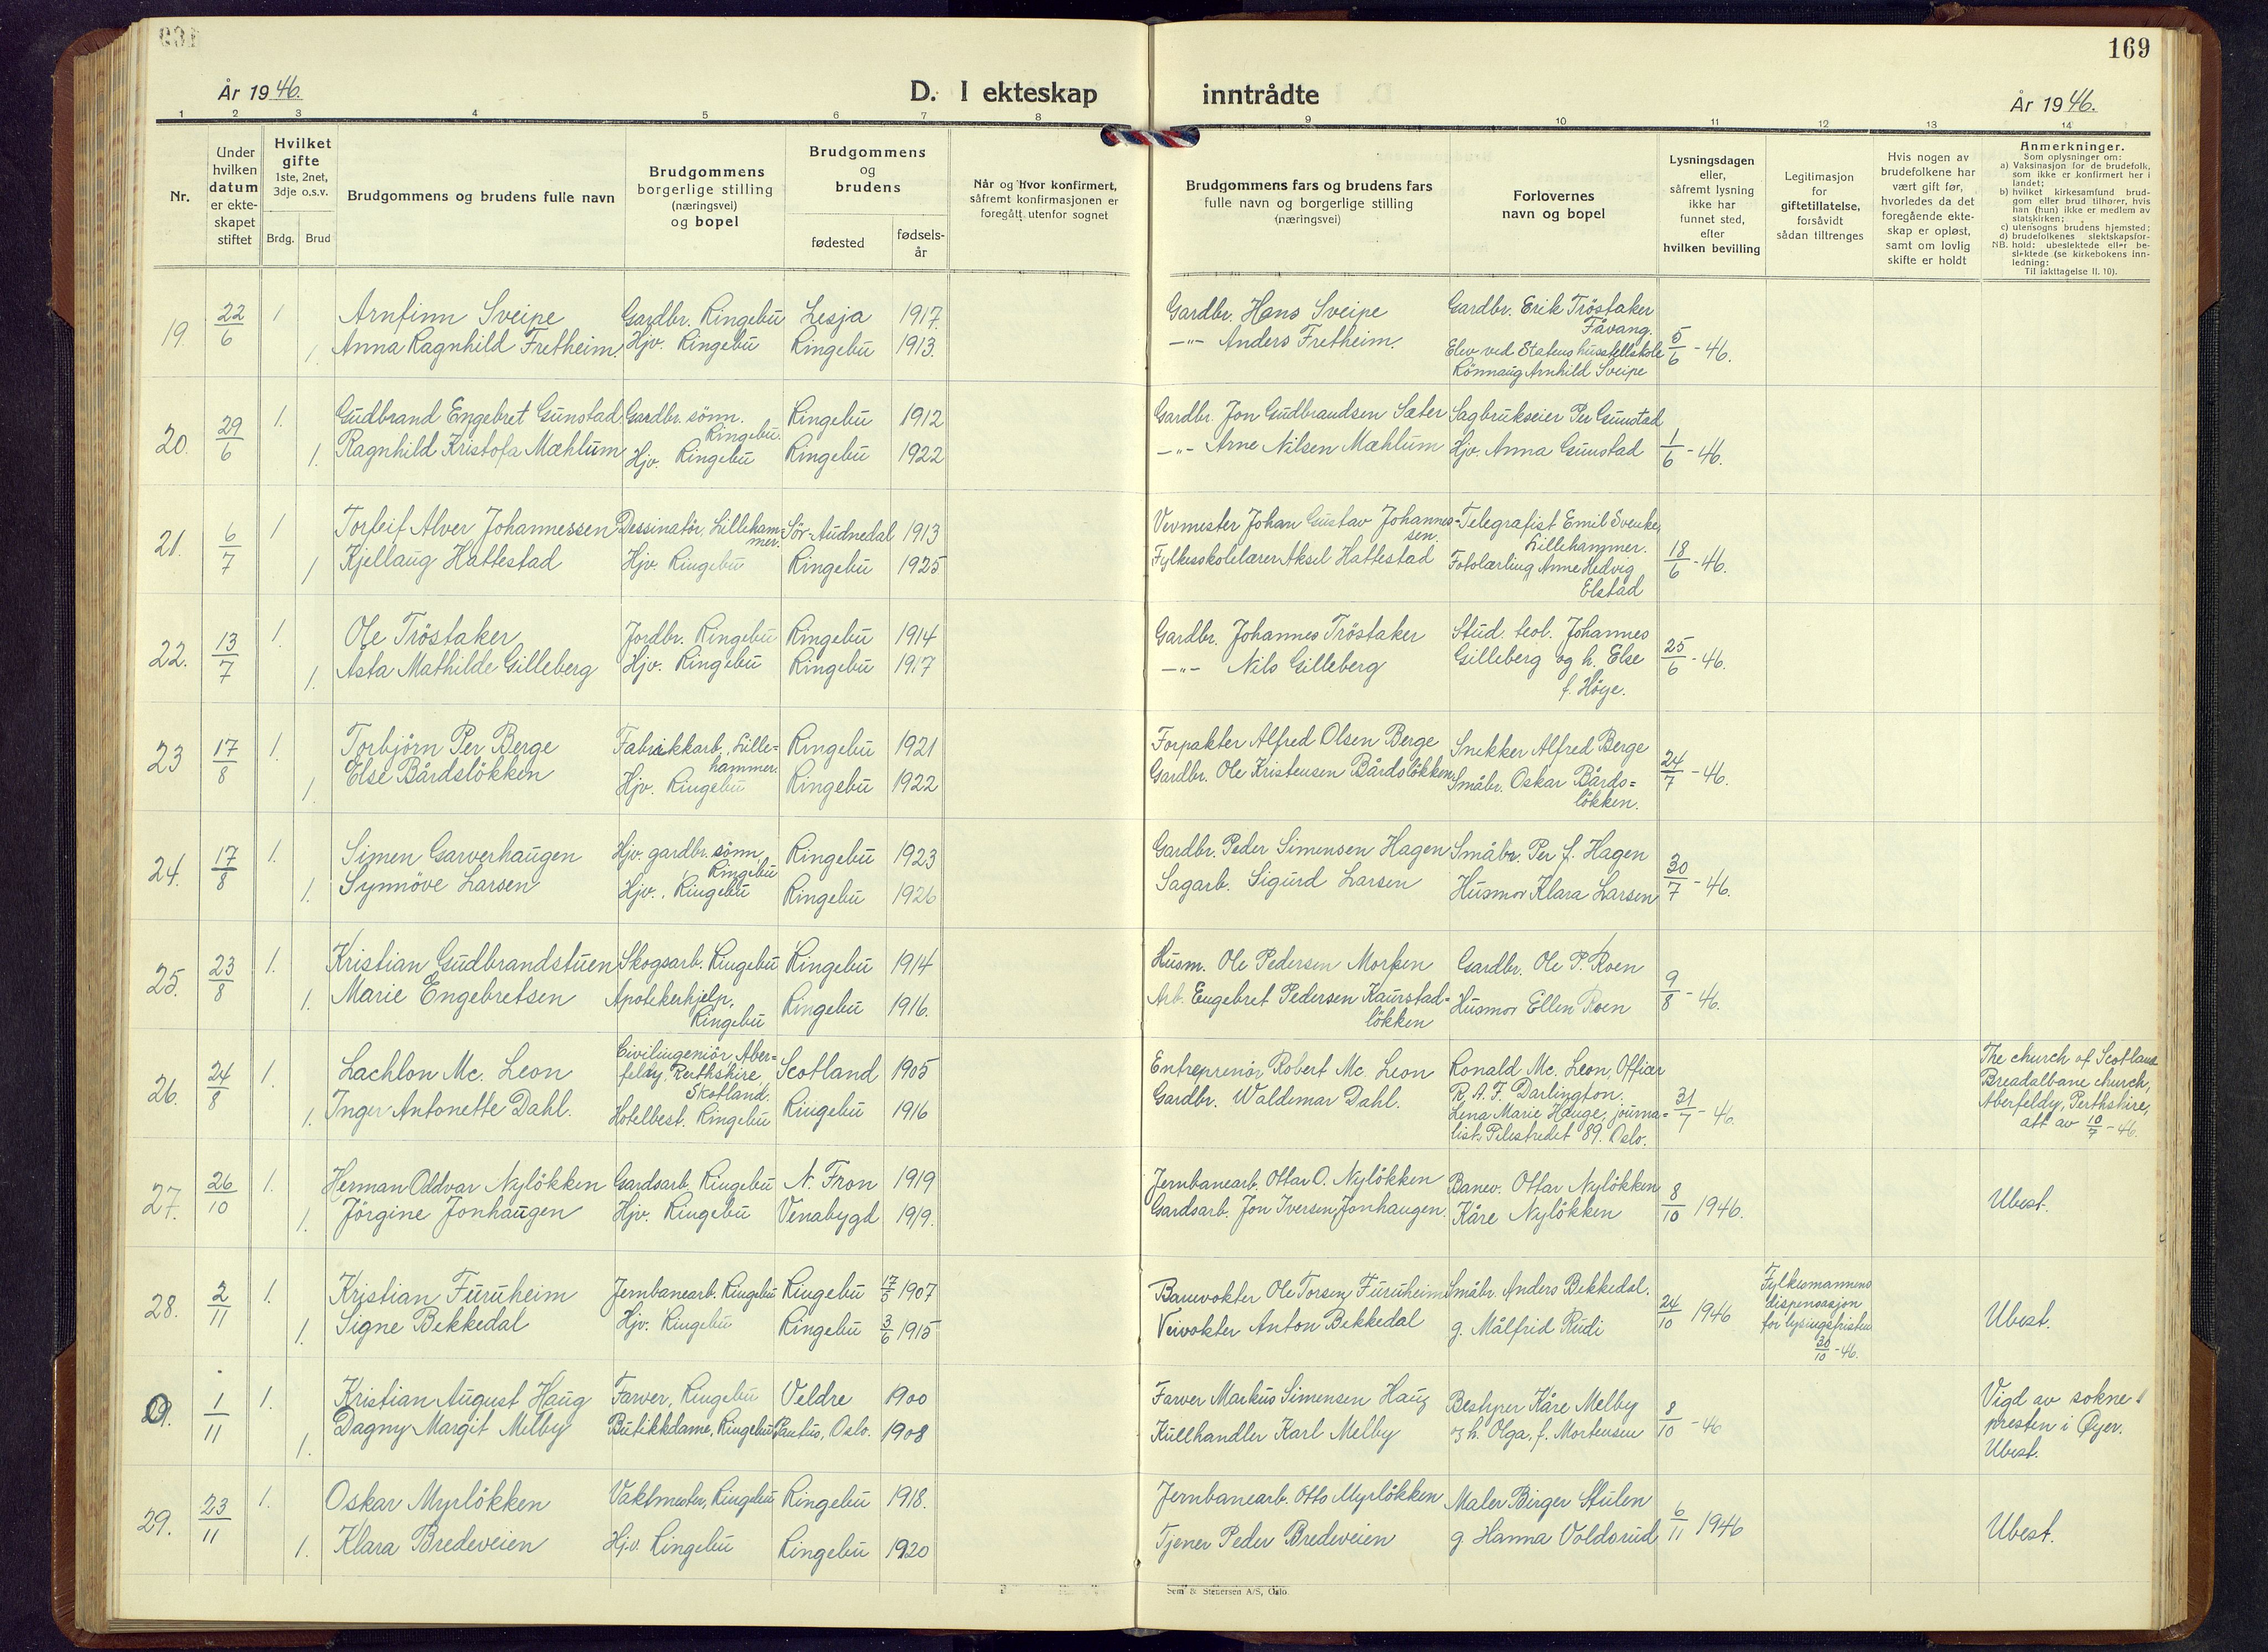 169
År 1946.
D. I ekteskap inntrådte
År 1946.
1 2 3 4 5 6 7 8 9 10 11 12 13 14
Nr.
Under hvilken datum er ekteskapet stiftet
Hvilket gifte 1ste, 2net, 3dje o.s.v.
Brdg. Brud
Brudgommens og brudens fulle navn
Brudgommens borgerlige stilling (næringsvei) og bopel
Brudgommens og brudens
fødested
fødselsår
Når og hvor konfirmert, såfremt konfirmasjonen er foregått utenfor sognet
Brudgommens fars og brudens fars fulle navn og borgerlige stilling (næringsvei)
Forlovernes navn og bopel
Lysningsdagen eller, såfremt lysning ikke har funnet sted, efter hvilken bevilling
Legitimasjon for giftetillatelse, forsåvidt sådan tiltrenges
Hvis nogen av brudefolkene har vært gift før, hvorledes da det foregående ekteskap er opløst, samt om lovlig skifte er holdt
Anmerkninger.
Som oplysninger om:
a) Vaksinasjon for de brudefolk, som ikke er konfirmert her i landet;
b) hvilket kirkesamfund brudgom eller brud tilhører, hvis han (hun) ikke er medlem av statskirken;
c) utensogns brudens hjemsted;
d) brudefolkenes slektskapsforhold: ubeslektede eller beslektede (se kirkebokens innledning:
NB.
Til iakttagelse II. 10).
19. 22/6 1 Arnfinn Sveipe Gardbr. Ringebu Lesja 1917 Gardbr. Hans Sveipe Gardbr. Erik Tröstaker Fåvang. 5/6-46.
1. Anna Ragnhild Fretheim. Hjv. Ringebu Ringebu 1913. -"- Anders Fretheim. Elev ved Statens husstellskole Rönnaug Arnhild Sveipe
20. 29/6 1. Gudbrand Engebret Gunstad Gardbr. sönn. Ringebu. Ringebu 1912 Gardbr. Jon Gudbrandsen Sæter Sagbrukseier Per Gunstad 1/6-46.
1. Ragnhild Kristofa Mæhlum Hjv. Ringebu Ringebu 1922 -"- Arne Nilsen Mæhlum Hjv. Anna Gunstad
21. 6/7 1 Torleif Alver Johannessen Dessinatör, Lillehammer. Sör-Audnedal 1913 Vevmester Johan Gustav Johannessen. Telegrafist Emil Svenke, Lillehammer. 18/6-46.
1 Kjellaug Hattestad Hjv. Ringebu Ringebu 1925 Fylkesskolelærer Aksel Hattestad Fotolærling Anne Hedvig Elstad
22. 13/7 1. Ole Tröstaker Jordbr. Ringebu Ringebu 1914 Gardbr. Johannes Tröstaker Stud. teol. Johannes 25/6-46.
1. Asta Mathilde Gilleberg Hjv. Ringebu Ringebu 1917 -"- Nils Gilleberg Gilleberg og h. Else f. Höye.
23 17/8 1. Torbjörn Per Berge Fabrikkarb., Lillehammer. Ringebu 1921 Forpakter Alfred Olsen Berge Snekker Alfred Berge 24/7-46.
1. Else Bårdslökken Hjv. Ringebu Ringebu 1922 Gardbr. Ole Kristensen Bårdslökken Småbr. Oskar Bårdslökken.
24. 17/8 1. Simen Garverhaugen Hjv. gardbr. sönn, Ringebu Ringebu 1923 Gardbr. Peder Simensen Hagen Småbr. Per f. Hagen 30/7-46.
1. Synnöve Larsen Hjv., Ringebu Ringebu 1926 Sagarb. Sigurd Larsen Husmor Klara Larsen
25. 23/8 1. Kristian Gudbrandstuen Skogsarb. Ringebu Ringebu 1914 Husm. Ole Pedersen Morken Gardbr. Ole P. Roen 9/8-46.
1. Marie Engebretsen Apotekerhjelp. Ringebu Ringebu 1916. Arb. Engebret Pedersen Kaurstadlökken Husmor Ellen Roen
26. 24/8 1. Lachlon Mc. Leon Civilingeniör, Aberfeldy, Perthshire, Skotland. Scotland 1905 Entreprenör Robert Mc Leon Ronald Mc. Leon, Officer R.A.F. Darlington. 31/7-46. The church of Scotland Breadalbane church, Aberfeldy, Perthshire, att av 10/7-46.
1. Inger Antonette Dahl. Hotelbest. Ringebu Ringebu 1916 Gardbr. Waldemar Dahl. Lena Marie Hauge, journalist. Pilestredet 89. Oslo.
27. 26/10 1. Herman Oddvar Nylökken Gardsarb. Ringebu N. Fron 1919 Jernbanearb. Ottar O. Nylökken Banev. Ottar Nylökken 8/10 1946. Ubest.
1. Jörgine Jonhaugen Hjv. Ringebu Venabygd 1919. Gardsarb. Jon Iversen Jonhaugen. Kåre Nylökken
28. 2/11 1. Kristian Furuheim Jernbanearb. Ringebu Ringebu 17/5 1907 Banevokter Ole Torsen Furuheim Småbr. Anders Bekkedal. 24/10 1946 Fylkesmannens dispensasjon for lysingsfristen 30/10-46. Ubest.
1. Signe Bekkedal Hjv. Ringebu Ringebu 3/6 1915 Veivokter Anton Bekkedal g. Målfrid Rudi
09. 1/11 1. Kristian August Haug Farver, Ringebu Veldre 1900 Farver Markus Simensen Haug Bestyrer Kåre Melby 8/10-46 Vigd av sokne presten i Øyer. Ubest.
1. Dagny Margit Melby Butikkdame, Ringebu Paulus, Oslo. 1908 Kullhandler Karl Melby og h. Olga, f. Mortensen
29. 23/11 1. Oskar Myrlökken Vaktmester, Ringebu Ringebu 1918. Jernbanearb. Otto Myrlökken Maler Birger Stulen 6/11 1946 Ubest.
1. Klara Bredeveien Hjv. Ringebu Ringebu 1920 Tjener Peder Bredeveien g. Hanna Voldsrud
Sem & Stenersen A/S, Oslo.